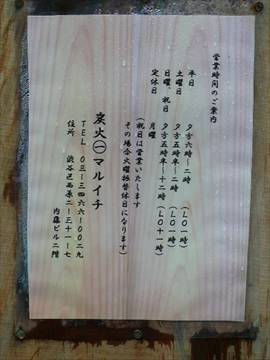 営業時間のご案内
平日 夕方六時〜二時 (LO一時)
土曜日 夕方五時半〜二時 (LO一時)
日曜、祝日 夕方五時半〜十二時 (LO十一時)
定休日 月曜
(祝日は営業いたします
その場合火曜振替休日になります)
炭火㊀マルイチ
TEL 〇三ー三四六六ー〇〇二九
住所 渋谷区西原二ー三十一ー七
内藤ビル二階